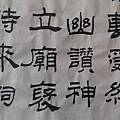 幽讚神
立廟褒
時來祠